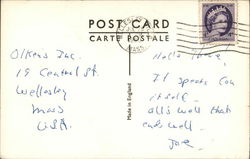 POST CARD
CARTE POSTALE
WELLESLEY
MASS
Olken's Inc.
19 Central St.
Wellesley
Mass
U.S.A.
Made in England
Hal's there,
It speaks for
itself.
all's well that
ends well